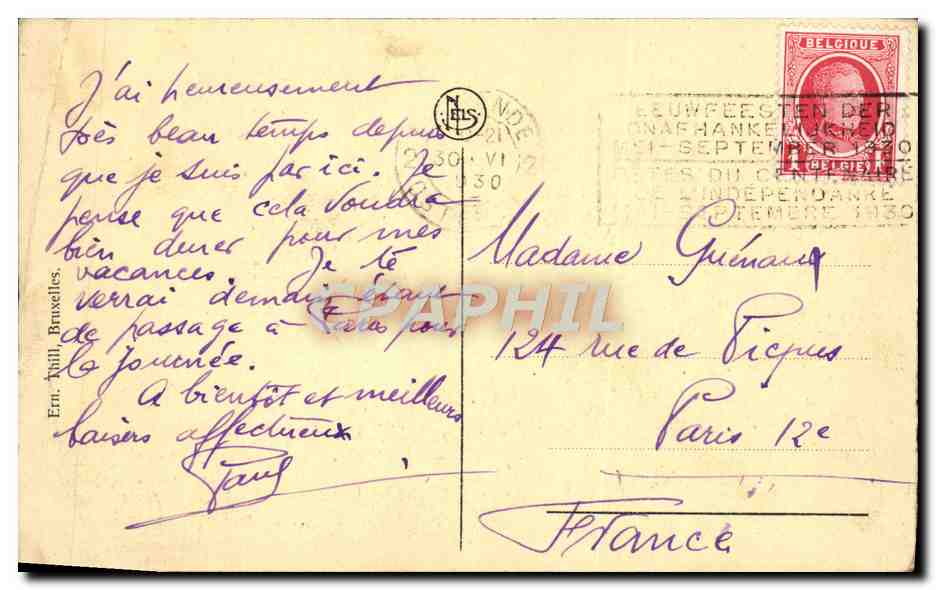 J'ai heureusement
très beau temps depuis
que je suis par ici. Je
pense que cela voudra
bien durer pour mes
vacances. Je te
verrai demain étant
de passage à Paris pour
la journée.
A bientôt et meilleurs
baisers affectueux
Paul
Ern. Thill, Bruxelles.
NELS
21
30 · VI
12
930
BELGIQUE
BELGIË
EEUWFEESTEN DER
ONAFHANKELIJKHEID
MEI-SEPTEMBER 1930
FETES DU CENTENAIRE
DE L'INDEPENDANCE
SEPTEMBRE 1930
Madame Guénaux
124 rue de Picpus
Paris 12e
France
CPAPHIL